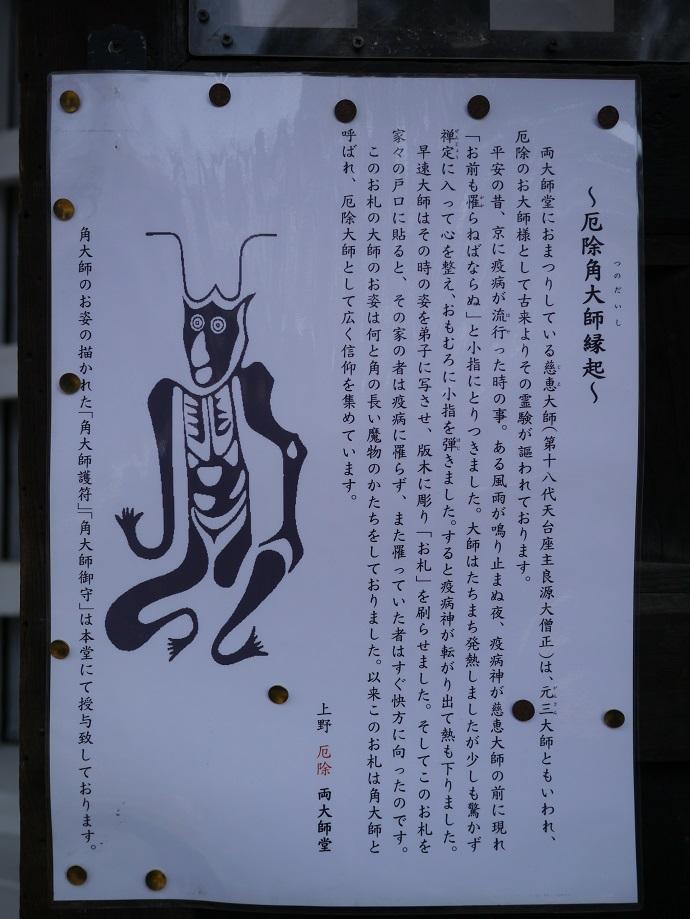 ～厄除角大師縁起～
つのだいし
両大師堂におまつりしている慈恵大師(第十八代天台座主良源大僧正)は、元三大師ともいわれ、
厄除のお大師様として古来よりその霊験が謳われております。
平安の昔、京に疫病が流行った時の事。ある風雨が鳴り止まぬ夜、疫病神が慈恵大師の前に現れ
「お前も罹らねばならぬ」と小指にとりつきました。大師はたちまち発熱しましたが少しも驚かず
禅定に入って心を整え、おもむろに小指を弾きました。すると疫病神が転がり出て熱も下りました。
早速大師はその時の姿を弟子に写させ、版木に彫り「お札」を刷らせました。そしてこのお札を
家々の戸口に貼ると、その家の者は疫病に罹らず、また罹っていた者はすぐ快方に向ったのです。
このお札の大師のお姿は何と角の長い魔物のかたちをしておりました。以来このお札は角大師と
呼ばれ、厄除大師として広く信仰を集めています。
上野 厄除 両大師堂
角大師のお姿の描かれた「角大師護符」「角大師御守」は本堂にて授与致しております。